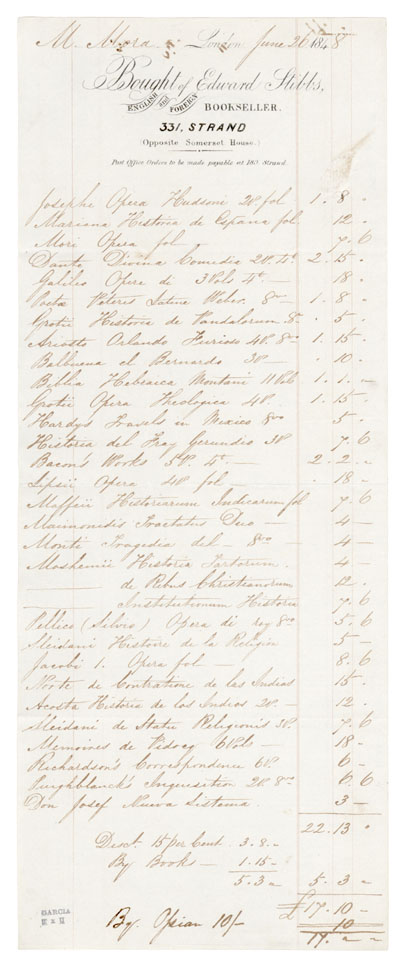 M. Mora London June 20 1848
Bought of Edward Stibbs,
ENGLISH and FOREIGN BOOKSELLER.
331, STRAND
(Opposite Somerset House.)
Post Office Orders to be made payable at 180 Strand
Josephi Opera Hudsoni 2V. fol 1. 8 "
Mariana Historia de España fol 12 "
Mori Opera fol 7. 6
Dante Divina Comedia 2V. 4° 2. 15 "
Galileo Opere di 3 Vols 4° — 18 "
Poeta Veteris Latinæ Weber. 8vo — 1. 8 "
Grotii Historia de Vandalorum 8° . 5 .
Ariosto Orlando Furioso 4V. 8vo 1. 15 .
Balbuena el Bernardo 3V — . 10 .
Biblia Hebraica Montani 11 Vols 1. 1. —
Grotii Opera Theologica 4V. 1. 15 .
Hardy's Travels in Mexico 8vo 5 .
Historia del Fray Gerundio 3V 7. 6
Bacon's Works 5V. 4° — 2. 2 "
Lipsii Opera 4V fol — . 18 .
Maffeii Historiarum Indicarum fol 7. 6
Maimonidis Tractatus Duo — 4 —
Monti Tragedia del — 8vo — 4 —
Moshemii Historia Tartorum . 4 —
—— de Rebus Christianorum 12 .
—— Institutionum Historia 7. 6
Pellico (Silvio) Opera di 8vo 5. 6
Sleidani Histoire de la Religion 5 —
Jacobi 1. Opera fol — 8. 6
Norte de Contratione de las Indias 15 .
Acosta Historia de los Indios 2V. — 12 .
Sleidani de Statu Religionis 3V. 7. 6
Memoires de Vidocq 6 Vols — 18 —
Richardson's Correspondence 6V. 6 —
Puighblanch's Inquisition 2V. 8vo 6. 6
Don Josef Nueva Sistema . 3 —
22. 13 "
Disct. 15 per Cent. 3. 8. —
By Books — 1. 15 —
5. 3 " 5. 3 "
£17. 10 —
By 10/- 10
17. " "
GARCIA